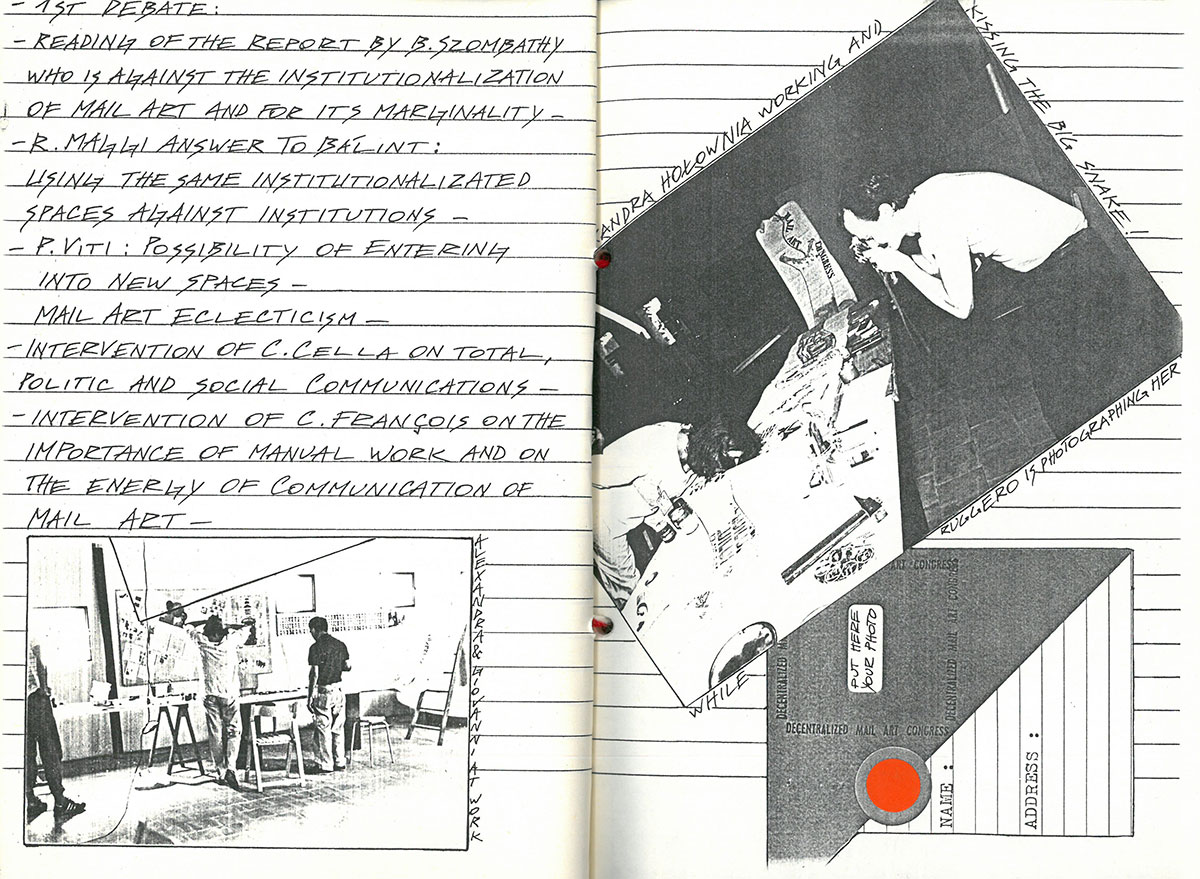 - 1ST DEBATE:
- READING OF THE REPORT BY B. SZOMBATHY
WHO IS AGAINST THE INSTITUTIONALIZATION
OF MAIL ART AND FOR ITS MARGINALITY -
- R. MAGGI ANSWER TO BÁLINT:
USING THE SAME INSTITUTIONALIZATED
SPACES AGAINST INSTITUTIONS -
- P. VITI: POSSIBILITY OF ENTERING
INTO NEW SPACES -
MAIL ART ECLECTICISM -
- INTERVENTION OF C. CELLA ON TOTAL,
POLITIC AND SOCIAL COMMUNICATIONS -
- INTERVENTION OF C. FRANÇOIS ON THE
IMPORTANCE OF MANUAL WORK AND ON
THE ENERGY OF COMMUNICATION OF
MAIL ART -
ALEXANDRA & GIOVANNI AT WORK
ANDRA HOŁOWNIA WORKING AND
KISSING THE BIG SNAKE!
MAIL ART
CONGRESS
WHILE
RUGGERO IS PHOTOGRAPHING HER
ART CONGRESS
DECENTRALIZED M
PUT HERE
YOUR PHOTO
DECENTRALIZED MAIL ART CONGRESS
DECENTRALIZED MAIL ART CONGRESS
NAME:
ADDRESS: